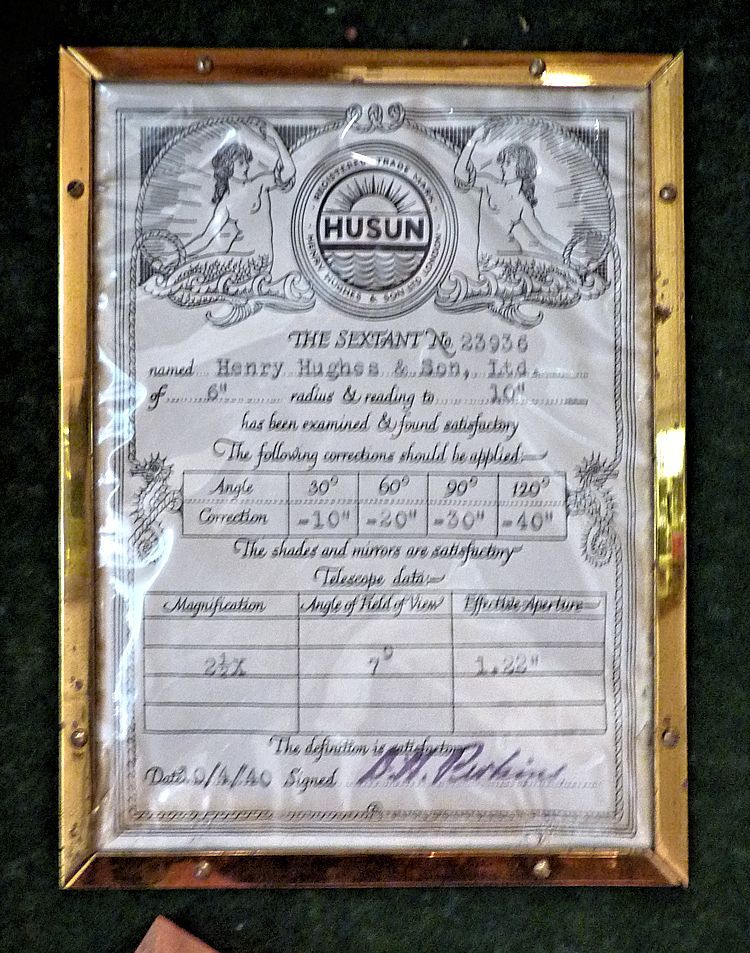 REGISTERED TRADE MARK
HUSUN
HENRY HUGHES & SON LTD LONDON
THE SEXTANT No. 23936
named Henry Hughes & Son, Ltd.
of 6" radius & reading to 10"
has been examined & found satisfactory
The following corrections should be applied:—
Angle 30° 60° 90° 120°
Correction -10" -20" -30" -40"
The shades and mirrors are satisfactory
Telescope data:—
Magnification Angle of Field of View Effective Aperture
2½X 7° 1.22"
The definition is satisfactory
Date 0/4/40 Signed Perkins